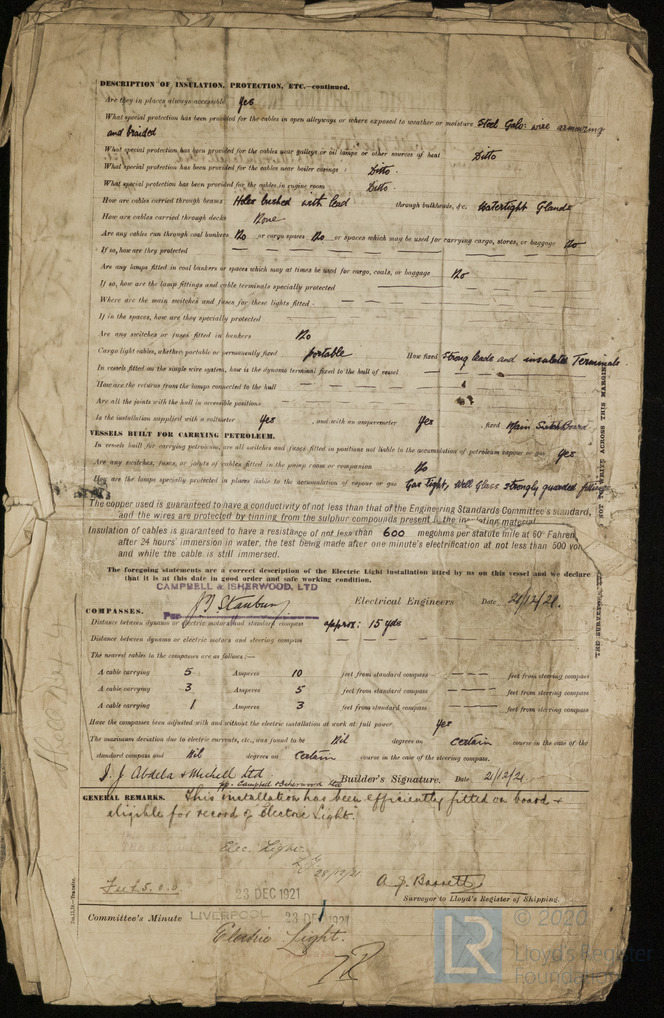 DESCRIPTION OF INSULATION, PROTECTION, ETC.—continued.
Are they in places always accessible Yes
What special protection has been provided for the cables in open alleyways or where exposed to weather or moisture Steel Galv: wire armouring
and braided
What special protection has been provided for the cables near galleys or oil lamps or other sources of heat Ditto
What special protection has been provided for the cables near boiler casings Ditto.
What special protection has been provided for the cables in engine room Ditto.
How are cables carried through beams Holes bushed with lead through bulkheads, &c. Watertight Glands
How are cables carried through decks None
Are any cables run through coal bunkers No or cargo spaces No or spaces which may be used for carrying cargo, stores, or baggage No
If so, how are they protected
Are any lamps fitted in coal bunkers or spaces which may at times be used for cargo, coals, or baggage No
If so, how are the lamp fittings and cable terminals specially protected
Where are the main switches and fuses for these lights fitted
If in the spaces, how are they specially protected
Are any switches or fuses fitted in bunkers No
Cargo light cables, whether portable or permanently fixed portable How fixed Strong leads and insulated Terminals.
In vessels fitted on the single wire system, how is the dynamo terminal fixed to the hull of vessel
How are the returns from the lamps connected to the hull
Are all the joints with the hull in accessible positions
Is the installation supplied with a voltmeter Yes , and with an amperemeter Yes , fixed Main Switch Board
VESSELS BUILT FOR CARRYING PETROLEUM.
In vessels built for carrying petroleum, are all switches and fuses fitted in positions not liable to the accumulation of petroleum vapour or gas Yes
Are any switches, fuses, or joints of cables fitted in the pump room or companion No
How are the lamps specially protected in places liable to the accumulation of vapour or gas Gas tight, Well Glass strongly guarded fitting
The copper used is guaranteed to have a conductivity of not less than that of the Engineering Standards Committee's standard,
and the wires are protected by tinning from the sulphur compounds present in the insulating material.
Insulation of cables is guaranteed to have a resistance of not less than 600 megohms per statute mile at 60° Fahren
after 24 hours' immersion in water, the test being made after one minute's electrification at not less than 500 vol
and while the cable is still immersed.
The foregoing statements are a correct description of the Electric Light installation fitted by us on this vessel and we declare
that it is at this date in good order and safe working condition.
CAMPBELL & ISHERWOOD, LTD
PER J. T. Stanbury Electrical Engineers Date 21/12/21.
COMPASSES.
Distance between dynamo or electric motors and standard compass approx: 15 yds
Distance between dynamo or electric motors and steering compass
The nearest cables to the compasses are as follows:—
A cable carrying 5 Amperes 10 feet from standard compass feet from steering compass
A cable carrying 3 Amperes 5 feet from standard compass feet from steering compass
A cable carrying 1 Amperes 3 feet from standard compass feet from steering compass
Have the compasses been adjusted with and without the electric installation at work at full power Yes
The maximum deviation due to electric currents, etc., was found to be Nil degrees on certain course in the case of the
standard compass and Nil degrees on certain course in the case of the steering compass.
I. J. Abdela & Mitchell Ltd
pp. Campbell & Isherwood Ltd Builder's Signature. Date 21/12/21.
GENERAL REMARKS. This installation has been efficiently fitted on board &
eligible for record of Electric Light.
Elec. Light
28/12/21
Fee £5.0.0.
23 DEC 1921
A. J. Barrett
Surveyor to Lloyd's Register of Shipping.
Committee's Minute LIVERPOOL 23 DEC 1921
Electric Light.
NOT TO WRITE ACROSS THIS MARGIN.
THE SURVEYOR
LR
© 2020
Lloyd's Register
Foundation